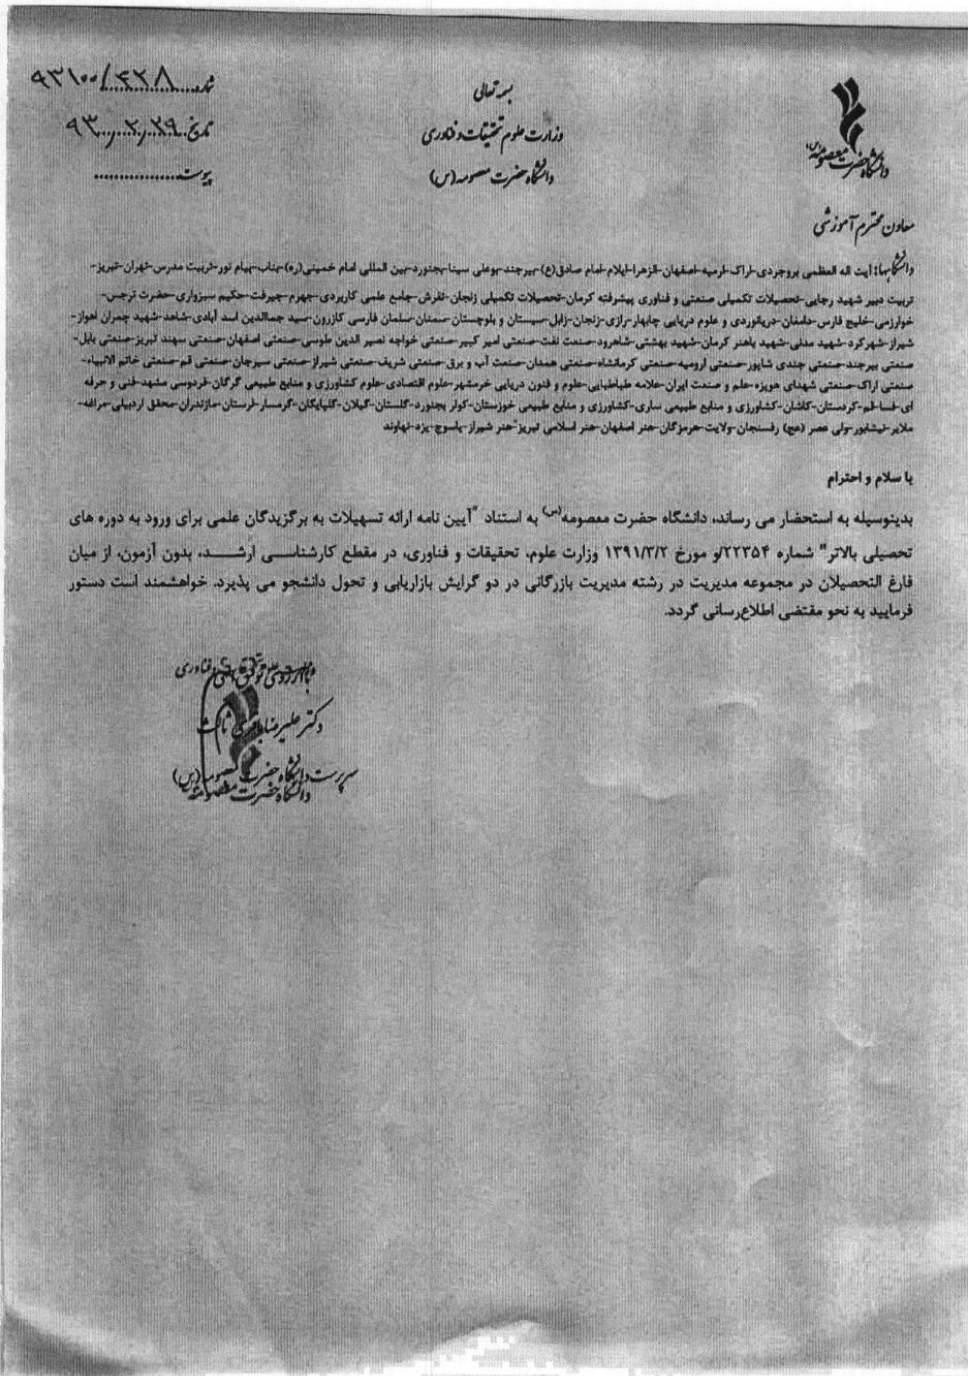 بسمه تعالی
وزارت علوم تحقیقات و فناوری
دانشگاه حضرت معصومه (س)
دانشگاه حضرت معصومه (س)
شماره ۹۳۱۰۰/۴۳۸
تاریخ ۹۳/۲/۲۹
پیوست
معاون محترم آموزشی
دانشگاهها: آیت اله العظمی بروجردی-اراک-ارمیه-اصفهان-الزهرا-ایلام-امام صادق(ع)-بیرجند-بوعلی سینا-بجنورد-بین المللی امام خمینی(ره)-بناب-پیام نور-تربیت مدرس-تهران-تبریز-
تربیت دبیر شهید رجایی-تحصیلات تکمیلی صنعتی و فناوری پیشرفته کرمان-تحصیلات تکمیلی زنجان-تفرش-جامع علمی کاربردی-جهرم-جیرفت-حکیم سبزواری-حضرت نرجس-
خوارزمی-خلیج فارس-دامغان-دریانوردی و علوم دریایی چابهار-رازی-زنجان-زابل-سیستان و بلوچستان-سمنان-سلمان فارسی کازرون-سید جمالدین اسد آبادی-شاهد-شهید چمران اهواز-
شیراز-شهرکرد-شهید مدنی-شهید باهنر کرمان-شهید بهشتی-شاهرود-صنعت نفت-صنعتی امیر کبیر-صنعتی خواجه نصیر الدین طوسی-صنعتی اصفهان-صنعتی سهند تبریز-صنعتی بابل-
صنعتی بیرجند-صنعتی جندی شاپور-صنعتی ارومیه-صنعتی کرمانشاه-صنعتی همدان-صنعت آب و برق-صنعتی شریف-صنعتی شیراز-صنعتی سیرجان-صنعتی قم-صنعتی خاتم الانبیاء-
صنعتی اراک-صنعتی شهدای هویزه-علم و صنعت ایران-علامه طباطبایی-علوم و فنون دریایی خرمشهر-علوم اقتصادی-علوم کشاورزی و منابع طبیعی گرگان-فردوسی مشهد-فنی و حرفه
ای-فسا-قم-کردستان-کاشان-کشاورزی و منابع طبیعی ساری-کشاورزی و منابع طبیعی خوزستان-کوثر بجنورد-گلستان-گیلان-گلپایگان-گرمسار-لرستان-مازندران-محقق اردبیلی-مراغه-
ملایر-نیشابور-ولی عصر (عج) رفسنجان-ولایت-هرمزگان-هنر اصفهان-هنر اسلامی تبریز-هنر شیراز-یاسوج-یزد-نهاوند
با سلام و احترام
بدینوسیله به استحضار می رساند، دانشگاه حضرت معصومه(س) به استناد "آیین نامه ارائه تسهیلات به برگزیدگان علمی برای ورود به دوره های
تحصیلی بالاتر" شماره ۲۲۳۵۴/و مورخ ۱۳۹۱/۳/۲ وزارت علوم، تحقیقات و فناوری، در مقطع کارشناسی ارشد، بدون آزمون، از میان
فارغ التحصیلان در مجموعه مدیریت در رشته مدیریت بازرگانی در دو گرایش بازاریابی و تحول دانشجو می پذیرد. خواهشمند است دستور
فرمایید به نحو مقتضی اطلاع‌رسانی گردد.
دکتر علیرضا
سرپرست دانشگاه حضرت معصومه (س)
دانشگاه حضرت معصومه